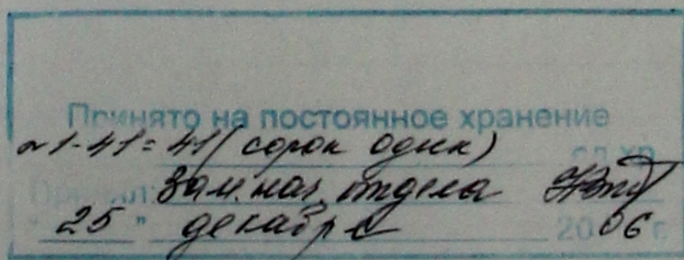 Принято на постоянное хранение
№ 1-41 = 41 (сорок один) ед.хр.
Принял: Зам. нач. отдела
" 25 " декабря 20 06 г.